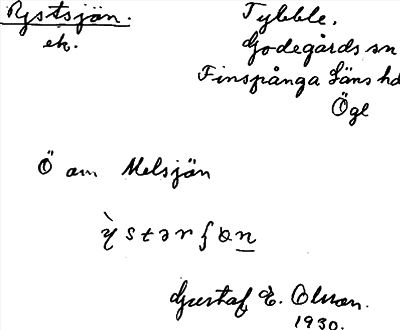 Rystsjön.
ek.
Tybble,
Godegårds sn
Finspånga läns hd
Ögl
Ö om Melsjön
Gustaf E. Olsson.
1930.